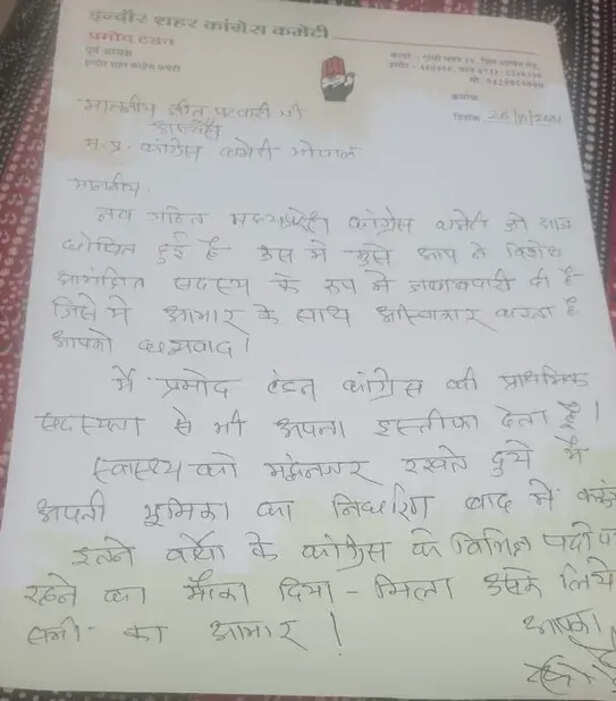 इन्दौर शहर कांग्रेस कमेटी
प्रमोद टंडन
पूर्व अध्यक्ष
इन्दौर शहर कांग्रेस कमेटी
क्रमांक
दिनांक 26/
माननीय जीतू पटवारी जी
अध्यक्ष
म.प्र. कांग्रेस कमेटी भोपाल
माननीय,
नव गठित मध्यप्रदेश कांग्रेस कमेटी जो आज
घोषित हुई है उस मे मुझे आप ने विशेष
आमंत्रित सदस्य के रूप मे जवाबदारी दी है
जिसे मे आभार के साथ अस्वीकार करता है
आपको धन्यवाद।
मै प्रमोद टंडन कांग्रेस की प्राथमिक
सदस्यता से भी अपना इस्तीफा देता हूँ।
स्वास्थ्य को मद्देनजर रखते हुये मै
अपनी भूमिका का निर्धारण बाद मे
इतने वर्षो के कांग्रेस के विभिन्न पदो
रहने का मौका दिया - मिला उसके लिये
सभी का आभार!
आपका